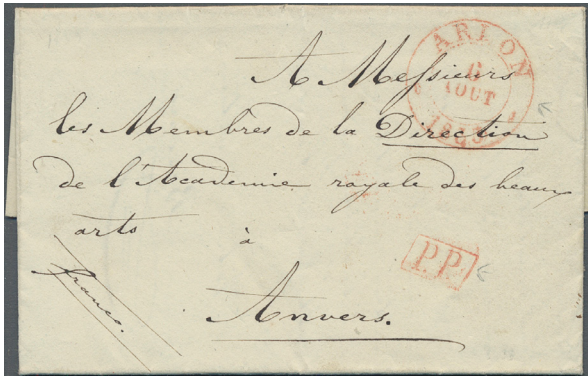 ARLON
6
AOUT
A Messieurs
les Membres de la Direction
de l'Academie royale des beaux
arts
à
P.P.
franco.
Anvers.